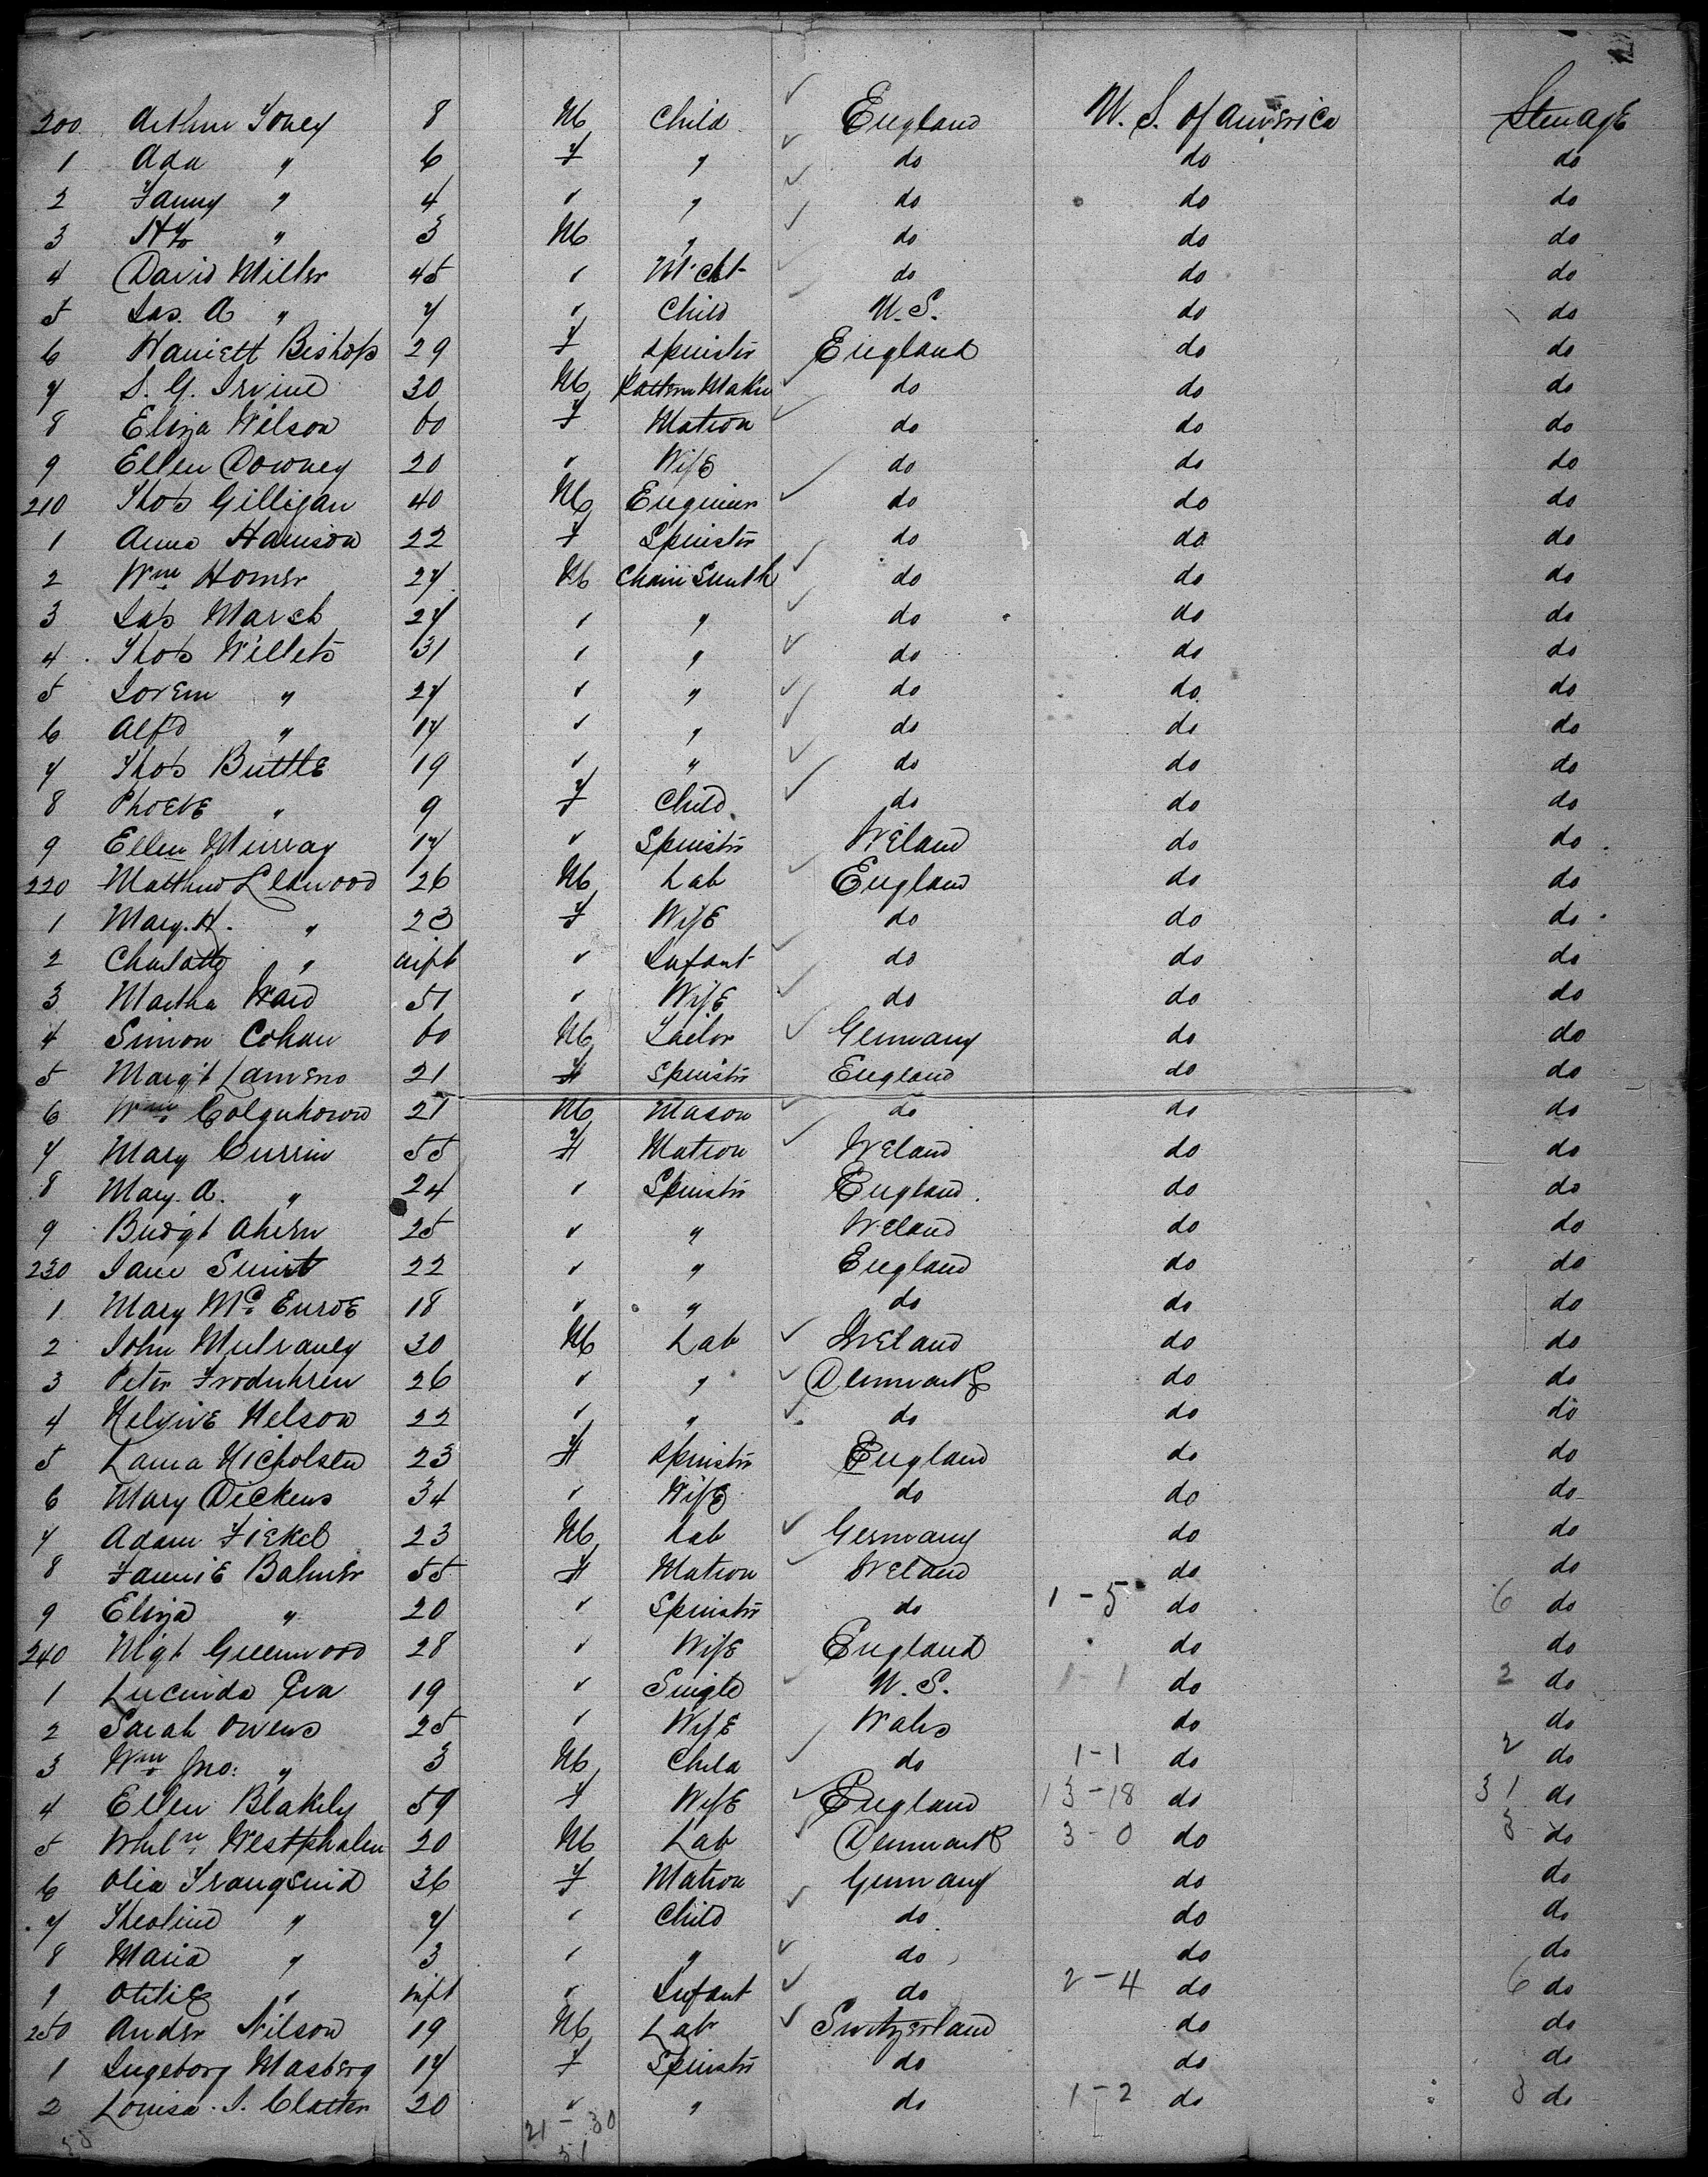 200 Arthur Toney 8 M Child England U. S. of America Steerage
1 Ada " 6 F " do do do
2 Fanny " 4 " " do do do
3 " 3 M " do do do
4 David Miller 45 " Mcht do do do
5 Jas. A " 7 " Child U.S. do do
6 Harriett Bishop 29 F Spinster England do do
7 S. G. Irvine 30 M Pattern Maker do do do
8 Eliza Wilson 60 F Matron do do do
9 Ellen Downey 20 " Wife do do do
210 Thos Gilligan 40 M Engineer do do do
1 Anna Harrison 22 F Spinster do do do
2 Wm Homer 27 M Chain Smith do do do
3 Jas March 27 " " do do do
4 Thos Willets 31 " " do do do
5 " 27 " " do do do
6 Alfd " 17 " " do do do
7 Thos Buttle 19 " " do do do
8 Phoebe " 9 F Child do do do
9 Ellen Murray 17 " Spinster Ireland do do
220 Matthew Leawood 26 M Lab England do do
1 Mary. H. " 23 F Wife do do do
2 Charlotte " inft " Infant do do do
3 Martha Ward 51 " Wife do do do
4 Simon Cohan 60 M Tailor Germany do do
5 Margt 21 F Spinster England do do
6 Wm Colquhoun 21 M Mason do do do
7 Mary Currin 55 F Matron Ireland do do
8 Mary. A. " 24 " Spinster England do do
9 Bridgt Ahern 25 " " Ireland do do
230 Jane 22 " " England do do
1 Mary Mc Enroe 18 " " do do do
2 John Mulraney 30 M Lab Ireland do do
3 Peter 26 " " Denmark do do
4 Nelson 22 " " do do do
5 Laura Nicholsen 23 F Spinster England do do
6 Mary Dickens 34 " Wife do do do
7 Adam Fickel 23 M Lab Germany do do
8 Fannie Balmer 55 F Matron Ireland do do
9 Eliza " 20 " Spinster do 1 - 5 do 6 do
240 Mgt Greenwood 28 " Wife England do do
1 Lucinda 19 " Single U. S. 1 - 1 do 2 do
2 Sarah Owens 25 " Wife Wales do do
3 Wm Jno: " 3 M Child do 1 - 1 do 2 do
4 Ellen Blakely 59 F Wife England 13 - 18 do 31 do
5 Whlm Westphalen 20 M Lab Denmark 3 - 0 do 3 do
6 Olia 36 F Matron Germany do do
7 " 7 " Child do do do
8 Maria " 3 " " do do do
9 Otilie " inft " Infant do 2 - 4 do 6 do
250 Ander Nilson 19 M Lab Switzerland do do
1 Ingeborg Masberg 17 F Spinster do do do
2 Louisa. J. Clatten 20 " " do 1 - 2 do 3 do
21 - 30
51